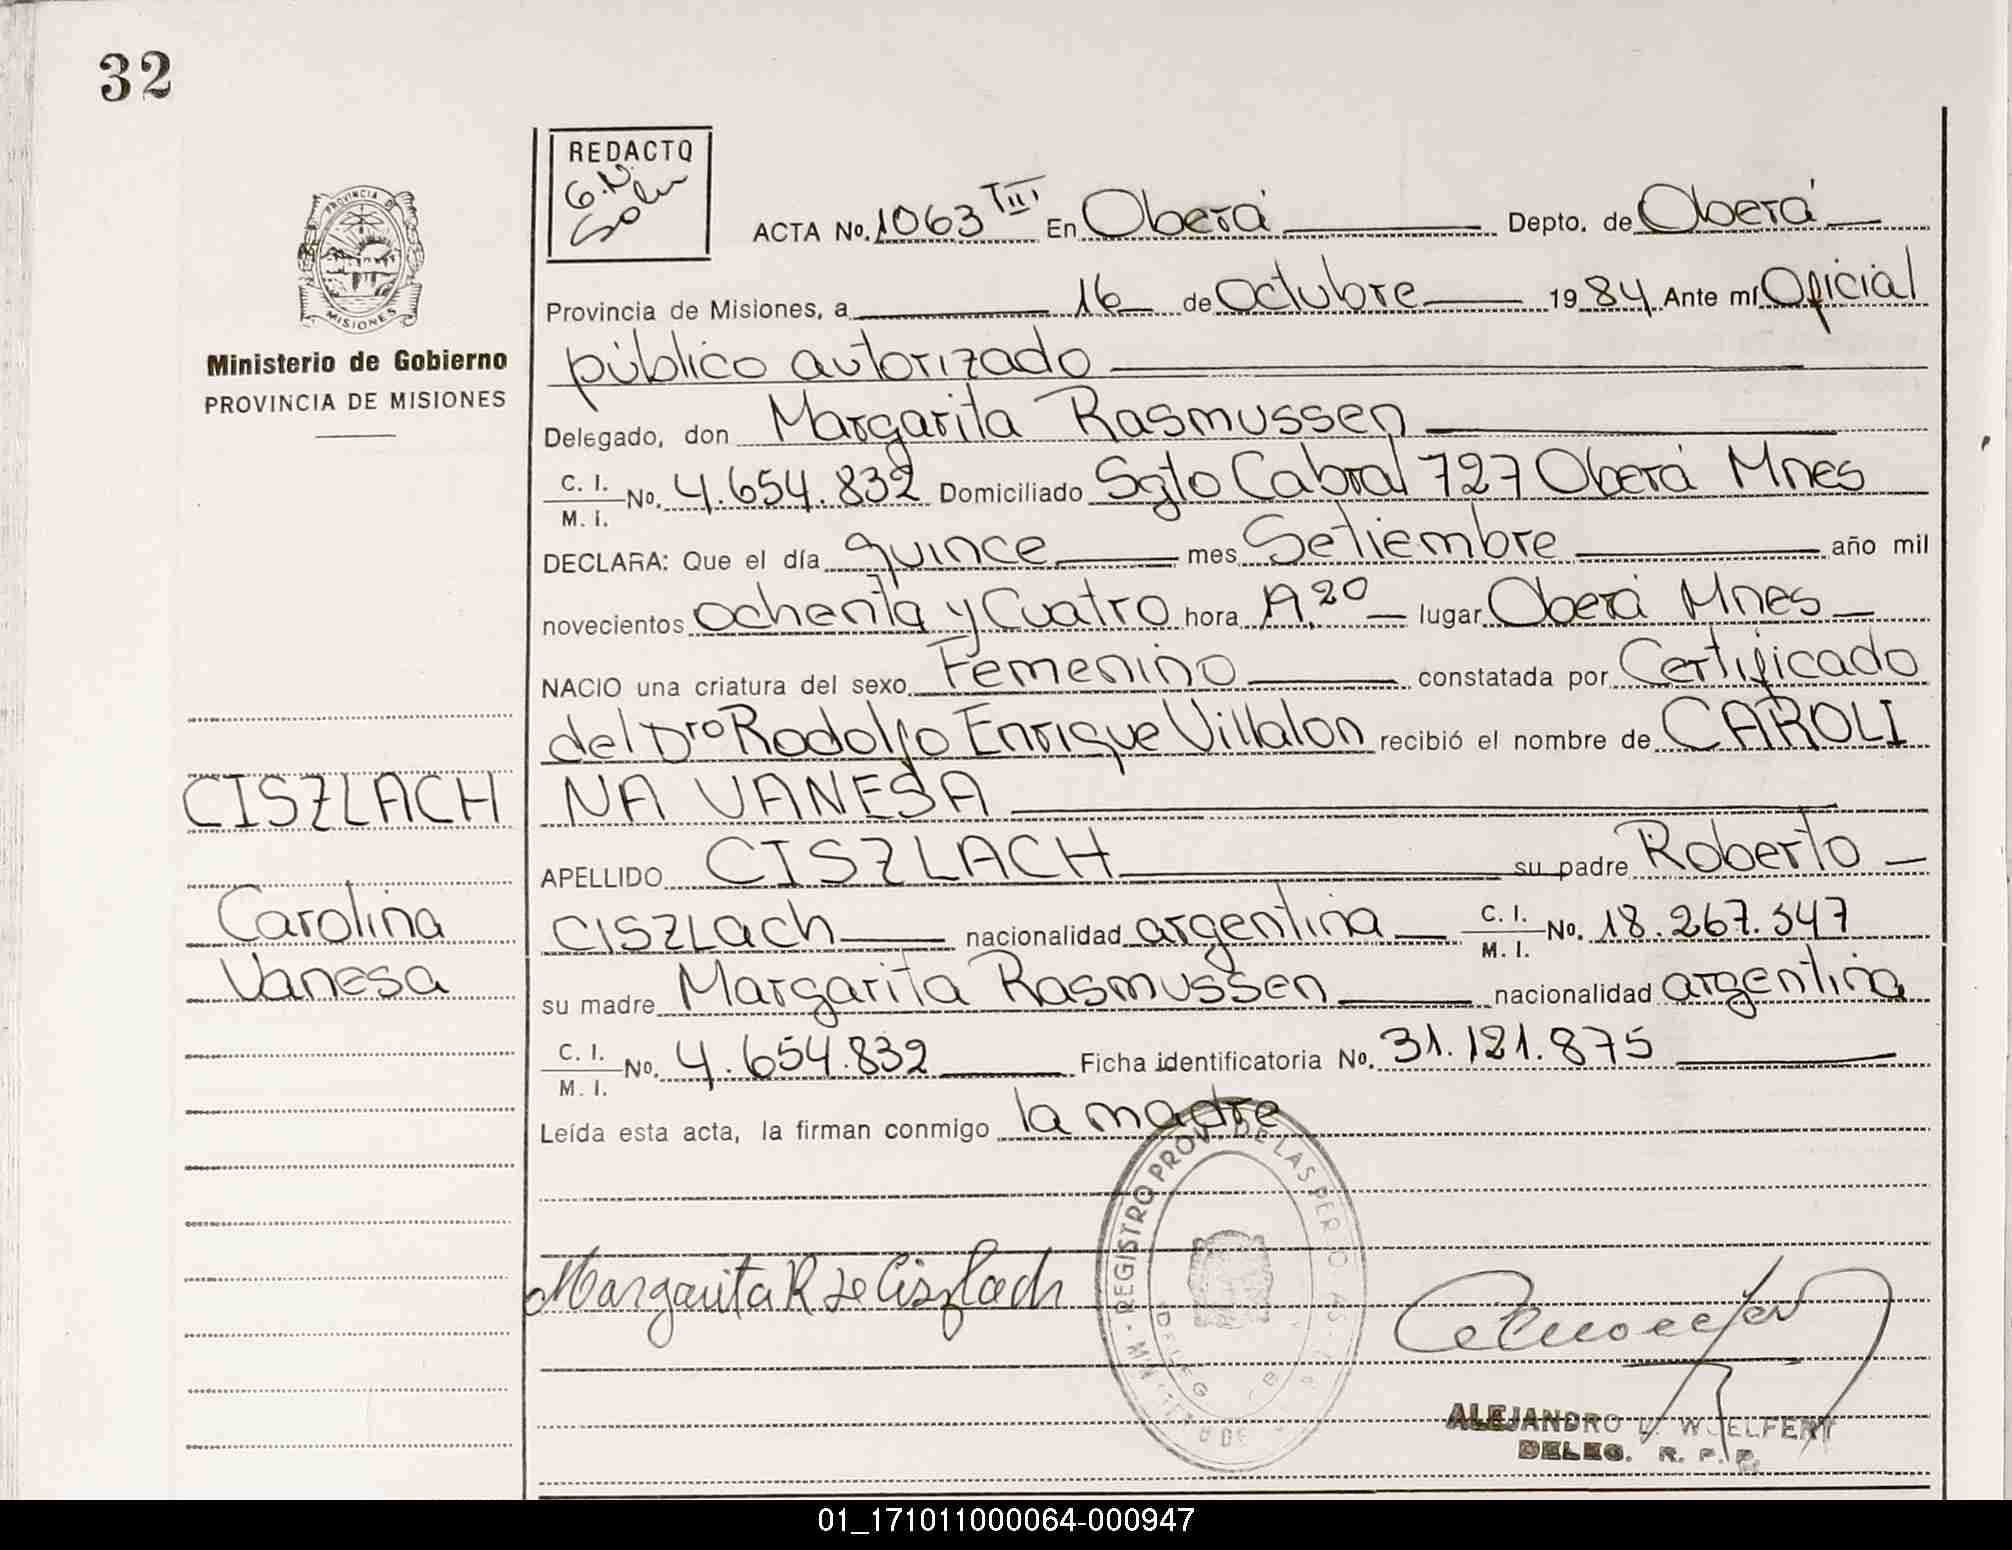 32
REDACTO
G.N.
PROVINCIA DE
MISIONES
Ministerio de Gobierno
PROVINCIA DE MISIONES
ACTA No. 1063 TIII En Oberá Depto. de Oberá
Provincia de Misiones, a 16 de Octubre 1984 Ante mí Oficial
público autorizado
Delegado, don Margarita Rasmussen
C. I.
M. I. No. 4.654.832 Domiciliado Sgto Cabral 727 Oberá Mnes
DECLARA: Que el día quince mes Setiembre año mil
novecientos ochenta y Cuatro hora lugar Oberá Mnes
NACIO una criatura del sexo Femenino constatada por Certificado
del Dro Rodolfo Enrique Villalon recibió el nombre de CAROLI
CISZLACH
NA VANESA
APELLIDO CISZLACH su padre Roberto
Carolina
CISZLach nacionalidad argentina C. I.
M. I. No. 18.267.347
Vanesa
su madre Margarita Rasmussen nacionalidad argentina
C. I.
M. I. No. 4.654.832 Ficha identificatoria No. 31.121.875
Leída esta acta, la firman conmigo la madre
REGISTRO PROV. DE LAS PER
DELEG
Margarita R de Ciszlach
ALEJANDRO L. WOELFERT
DELEG. R. P. P.
01_171011000064-000947